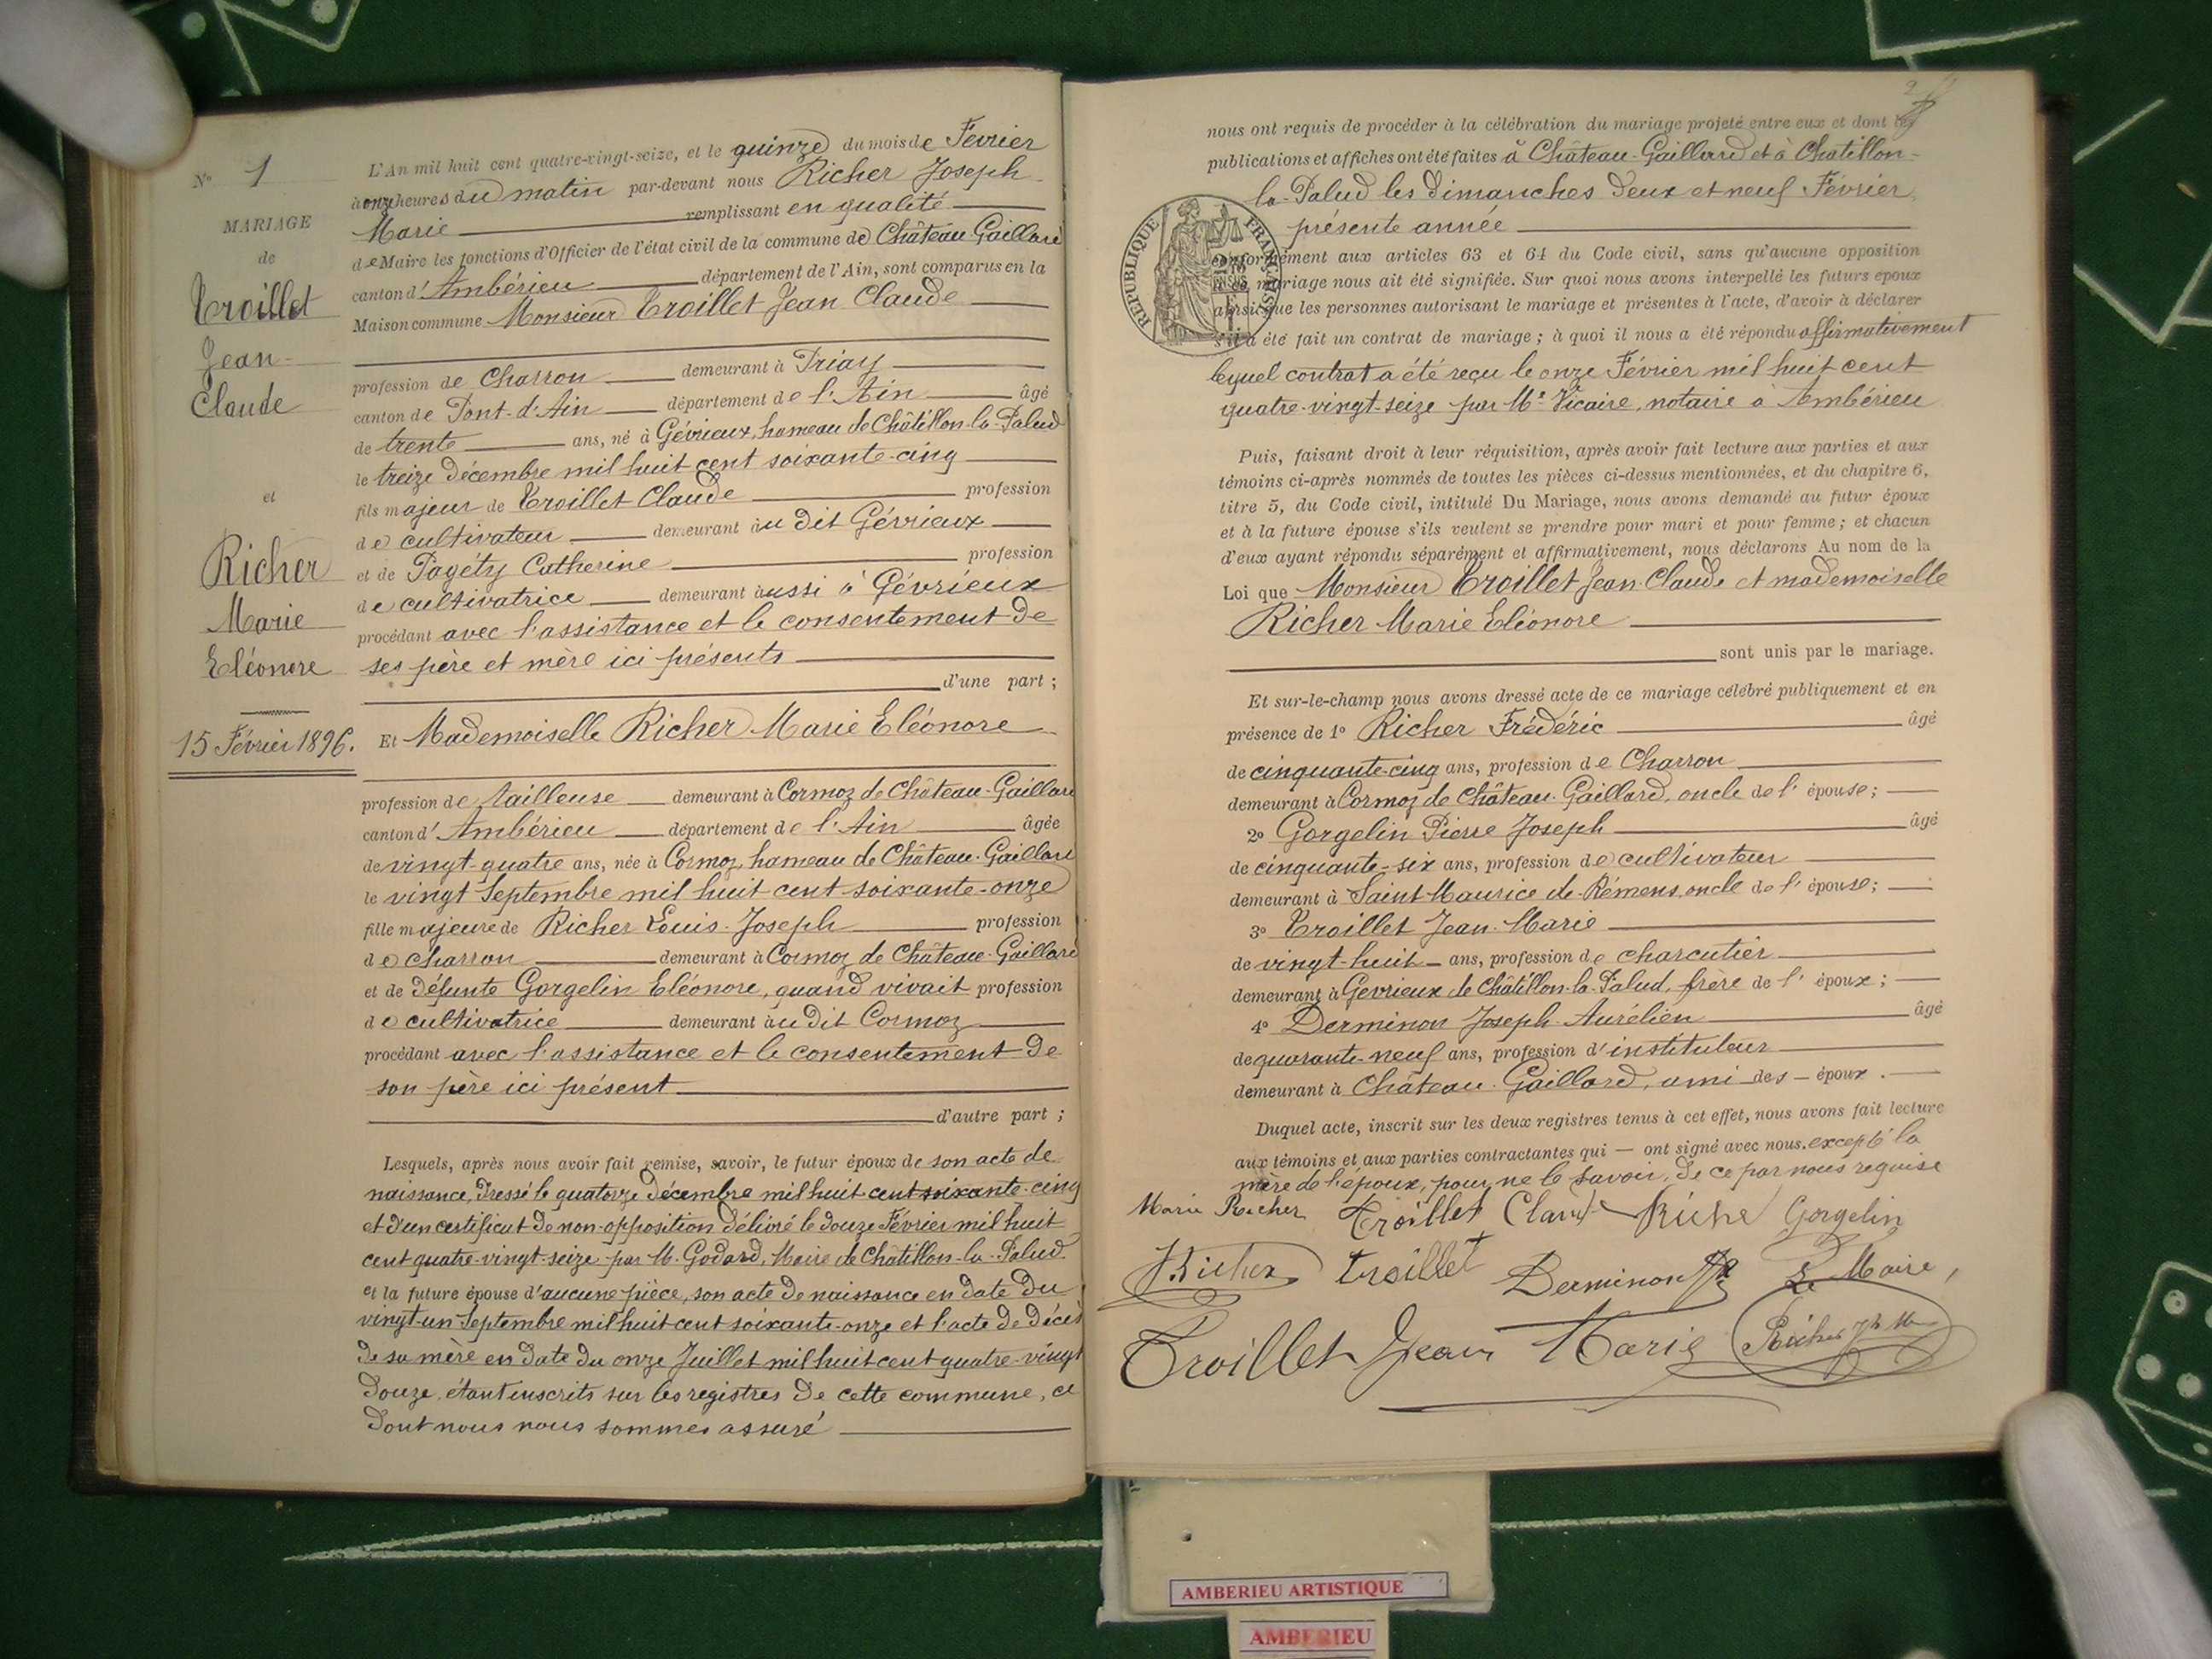 N° 1
MARIAGE
de
Troillet
Jean-
Claude
et
Richer
Marie
Eléonore
15 Février 1896.
L'An mil huit cent quatre-vingt-seize, et le quinze du mois de Février
à onze heures du matin par-devant nous Richer Joseph
Marie remplissant en qualité
de Maire les fonctions d'Officier de l'état civil de la commune de Château-Gaillard
canton d'Ambérieu département de l'Ain, sont comparus en la
Maison commune Monsieur Troillet Jean Claude
profession de Charron demeurant à Priay
canton de Pont-d'Ain département de l'Ain âgé
de trente ans, né à Gévrieux, hameau de Châtillon-la-Palud
le treize Décembre mil huit cent soixante-cinq
fils majeur de Troillet Claude profession
de cultivateur demeurant au dit Gévrieux
et de Pagéty Catherine profession
de cultivatrice demeurant aussi à Gévrieux
procédant avec l'assistance et le consentement de
ses père et mère ici présents
d'une part ;
Et Mademoiselle Richer Marie Eléonore
profession de tailleuse demeurant à Cormoz de Château-Gaillard
canton d'Ambérieu département de l'Ain âgée
de vingt-quatre ans, née à Cormoz, hameau de Château-Gaillard
le vingt Septembre mil huit cent soixante-onze
fille majeure de Richer Louis-Joseph profession
de charron demeurant à Cormoz de Château-Gaillard
et de défunte Gorgelin Eléonore, quand vivait profession
de cultivatrice demeurant au dit Cormoz
procédant avec l'assistance et le consentement de
son père ici présent
d'autre part ;
Lesquels, après nous avoir fait remise, savoir, le futur époux de son acte de
naissance, dressé le quatorze Décembre mil huit cent soixante-cinq
et d'un certificat de non-opposition délivré le douze Février mil huit
cent quatre-vingt-seize par M. Godard, Maire de Châtillon-la-Palud
et la future épouse d'aucune pièce, son acte de naissance en date du
vingt-un Septembre mil huit cent soixante-onze et l'acte de décès
de sa mère en date du onze Juillet mil huit cent quatre-vingt
douze, étant inscrits sur les registres de cette commune, ce
dont nous nous sommes assuré
2
nous ont requis de procéder à la célébration du mariage projeté entre eux et dont les
publications et affiches ont été faites à Château-Gaillard et à Chatillon-
la-Palud les dimanches deux et neuf Février,
présente année
RÉPUBLIQUE FRANÇAISE
conformément aux articles 63 et 64 du Code civil, sans qu'aucune opposition
audit mariage nous ait été signifiée. Sur quoi nous avons interpellé les futurs époux
ainsi que les personnes autorisant le mariage et présentes à l'acte, d'avoir à déclarer
s'il a été fait un contrat de mariage ; à quoi il nous a été répondu affirmativement
lequel contrat a été reçu le onze Février mil huit cent
quatre-vingt-seize par Me Vicaire, notaire à Ambérieu
Puis, faisant droit à leur réquisition, après avoir fait lecture aux parties et aux
témoins ci-après nommés de toutes les pièces ci-dessus mentionnées, et du chapitre 6,
titre 5, du Code civil, intitulé Du Mariage, nous avons demandé au futur époux
et à la future épouse s'ils veulent se prendre pour mari et pour femme ; et chacun
d'eux ayant répondu séparément et affirmativement, nous déclarons Au nom de la
Loi que Monsieur Troillet Jean-Claude et mademoiselle
Richer Marie Eléonore
sont unis par le mariage.
Et sur-le-champ nous avons dressé acte de ce mariage célébré publiquement et en
présence de 1° Richer Frédéric âgé
de cinquante-cinq ans, profession de Charron
demeurant à Cormoz de Château-Gaillard, oncle de l'épouse ;
2° Gorgelin Pierre Joseph âgé
de cinquante-six ans, profession de cultivateur
demeurant à Saint-Maurice-de-Rémens, oncle de l'épouse ;
3° Troillet Jean-Marie
de vingt-huit ans, profession de charcutier
demeurant à Gévrieux de Châtillon-la-Palud, frère de l'époux ;
4° Derminon Joseph-Aurélien âgé
de quarante-neuf ans, profession d'instituteur
demeurant à Château-Gaillard, ami des époux.
Duquel acte, inscrit sur les deux registres tenus à cet effet, nous avons fait lecture
aux témoins et aux parties contractantes qui — ont signé avec nous. excepté la
mère de l'époux, pour ne le savoir, de ce par nous requise
Marie Richer Troillet Claude Riche Gorgelin
Richer Troillet Derminon Le Maire,
Troillet Jean Marie Richer Jh M
AMBERIEU ARTISTIQUE
AMBERIEU